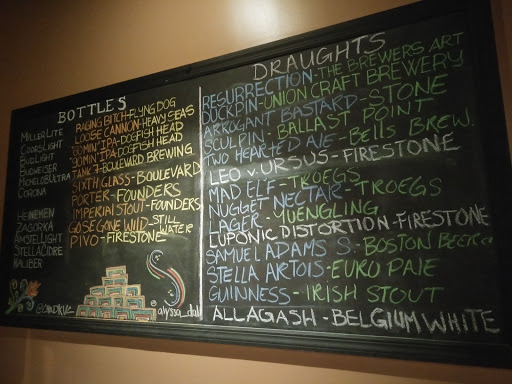 BOTTLES
MILLER LITE
COORS LIGHT
BUD LIGHT
BUDWEISER
MICHELOB ULTRA
CORONA
HEINEKEN
ZAGORKA
AMSTEL LIGHT
STELLA CIDRE
KALIBER
RAGING BITCH-FLYING DOG
LOOSE CANNON-HEAVY SEAS
60MIN' IPA-DOGFISH HEAD
90MIN' IPA-DOGFISH HEAD
TANK 7-BOULEVARD BREWING
SIXTH GLASS-BOULEVARD
PORTER-FOUNDERS
IMPERIAL STOUT-FOUNDERS
GOSE GONE WILD-STILLWATER
PIVO-FIRESTONE
@alyssa_dal
DRAUGHTS
RESURRECTION-THE BREWERS ART
DUCKPIN-UNION CRAFT BREWERY
ARROGANT BASTARD-STONE
SCULPIN-BALLAST POINT
TWO HEARTED ALE-BELLS BREW.
LEO v. URSUS-FIRESTONE
MAD ELF-TROEGS
NUGGET NECTAR-TROEGS
LAGER-YUENGLING
LUPONIC DISTORTION-FIRESTONE
SAMUEL ADAMS S.-BOSTON
STELLA ARTOIS-EURO PALE
GUINNESS-IRISH STOUT
ALLAGASH-BELGIUM WHITE